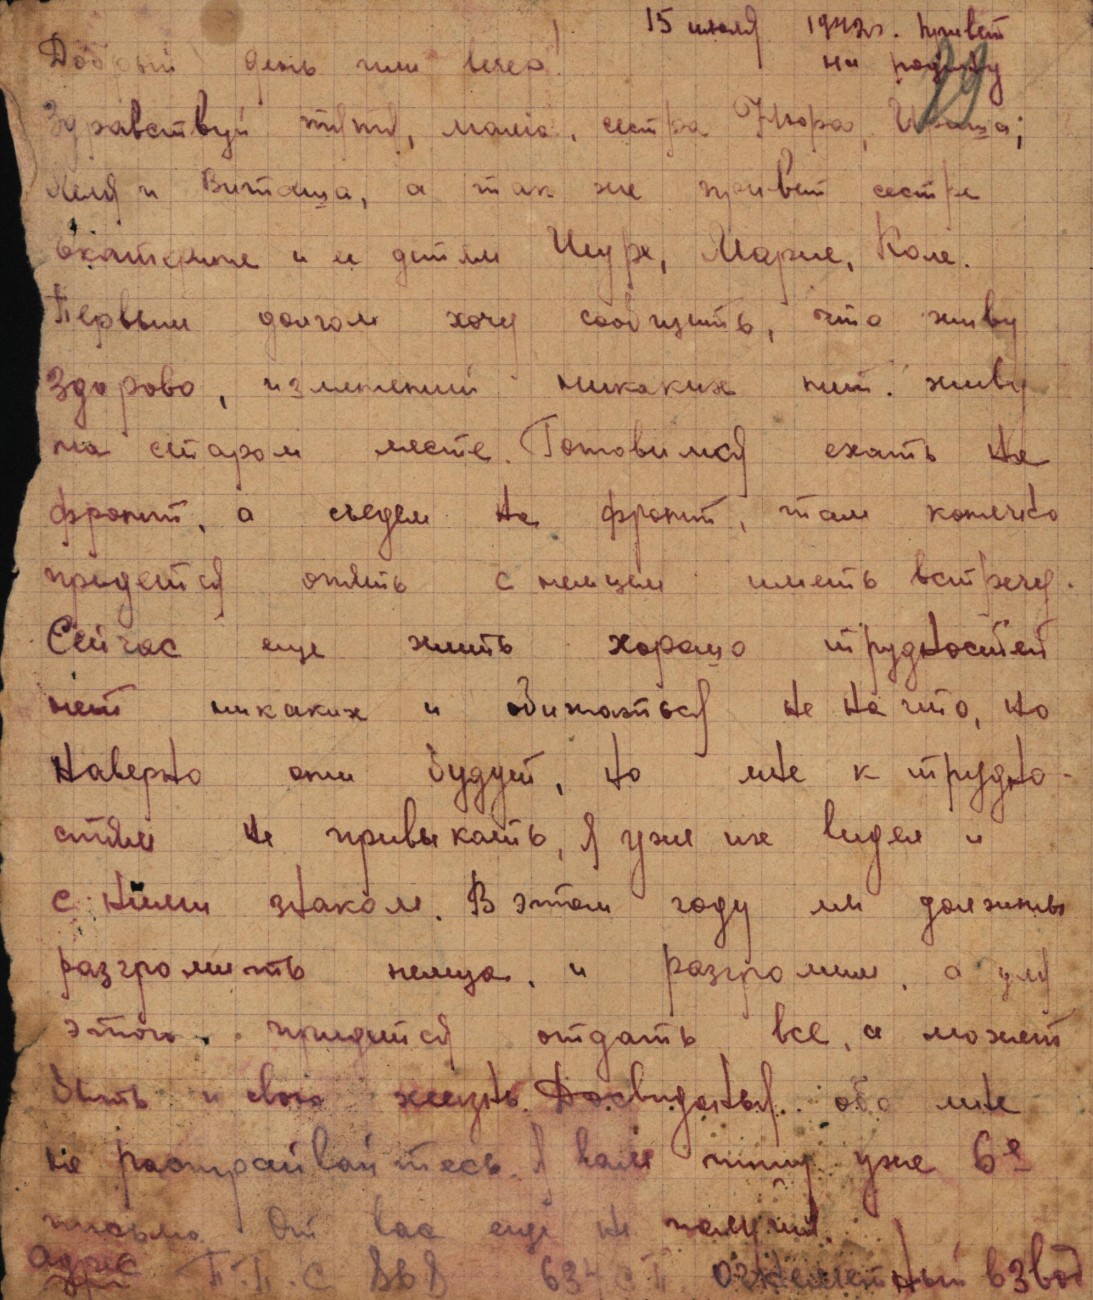 15 июля 1942г. Привет
на родину
29
Добрый день или вечер!
Здравствуй тятя, мама, сестра Нюра, Ираша,
Леля и Виташа, а так же привет сестре
Екатерине и ее детям Шуре, Марие, Коле.
Первым долгом хочу сообщить, что живу
здорово, изменений никаких нет. живу
на старом месте. Готовимся ехать на
фронт, а съедем на фронт, там конечно
придется опять с немцем иметь встречу.
Сейчас еще жить хорошо трудностей
нет никаких и обижаться не на что, но
наверно они будут, но мне к трудно-
стям не привыкать, я уже их видел и
с ними знаком. В этом году мы должны
разгромить немца, и разгромим, а для
этого придется отдать все, а может
быть и свою жизнь. Досвиданья. обо мне
не расстраивайтесь. Я вам пишу уже 6е
письмо. От вас еще не получил.
Адрес П.П.С 634 СП взвод